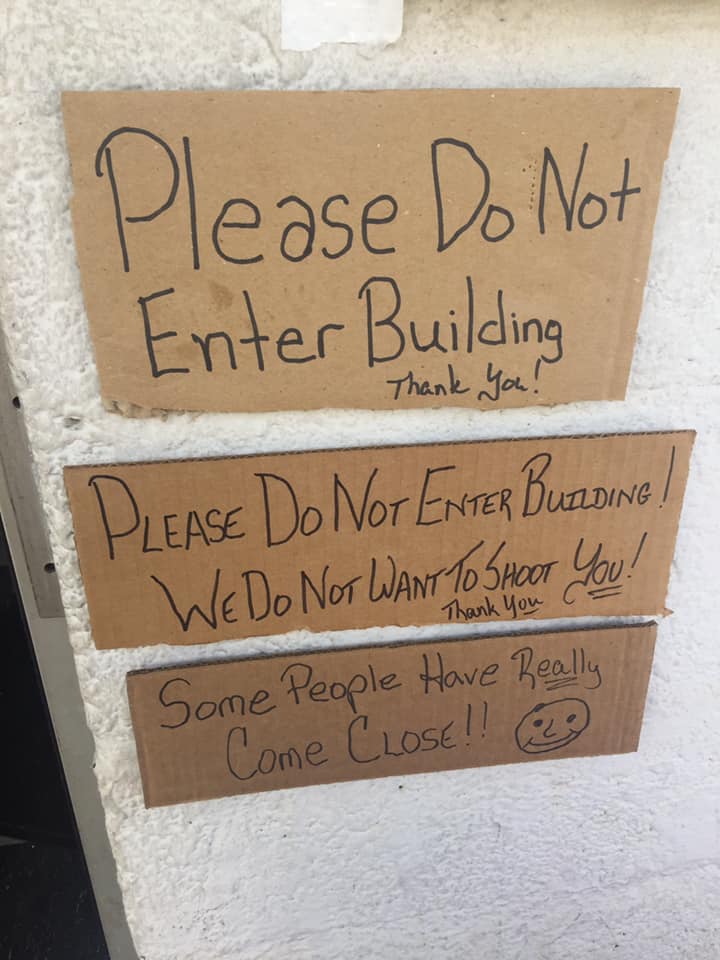 Please Do Not
Enter Building
Thank You!
PLEASE DO NOT ENTER BUILDING!
WE DO NOT WANT TO SHOOT YOU!
Thank You
Some People Have Really
Come CLOSE!!